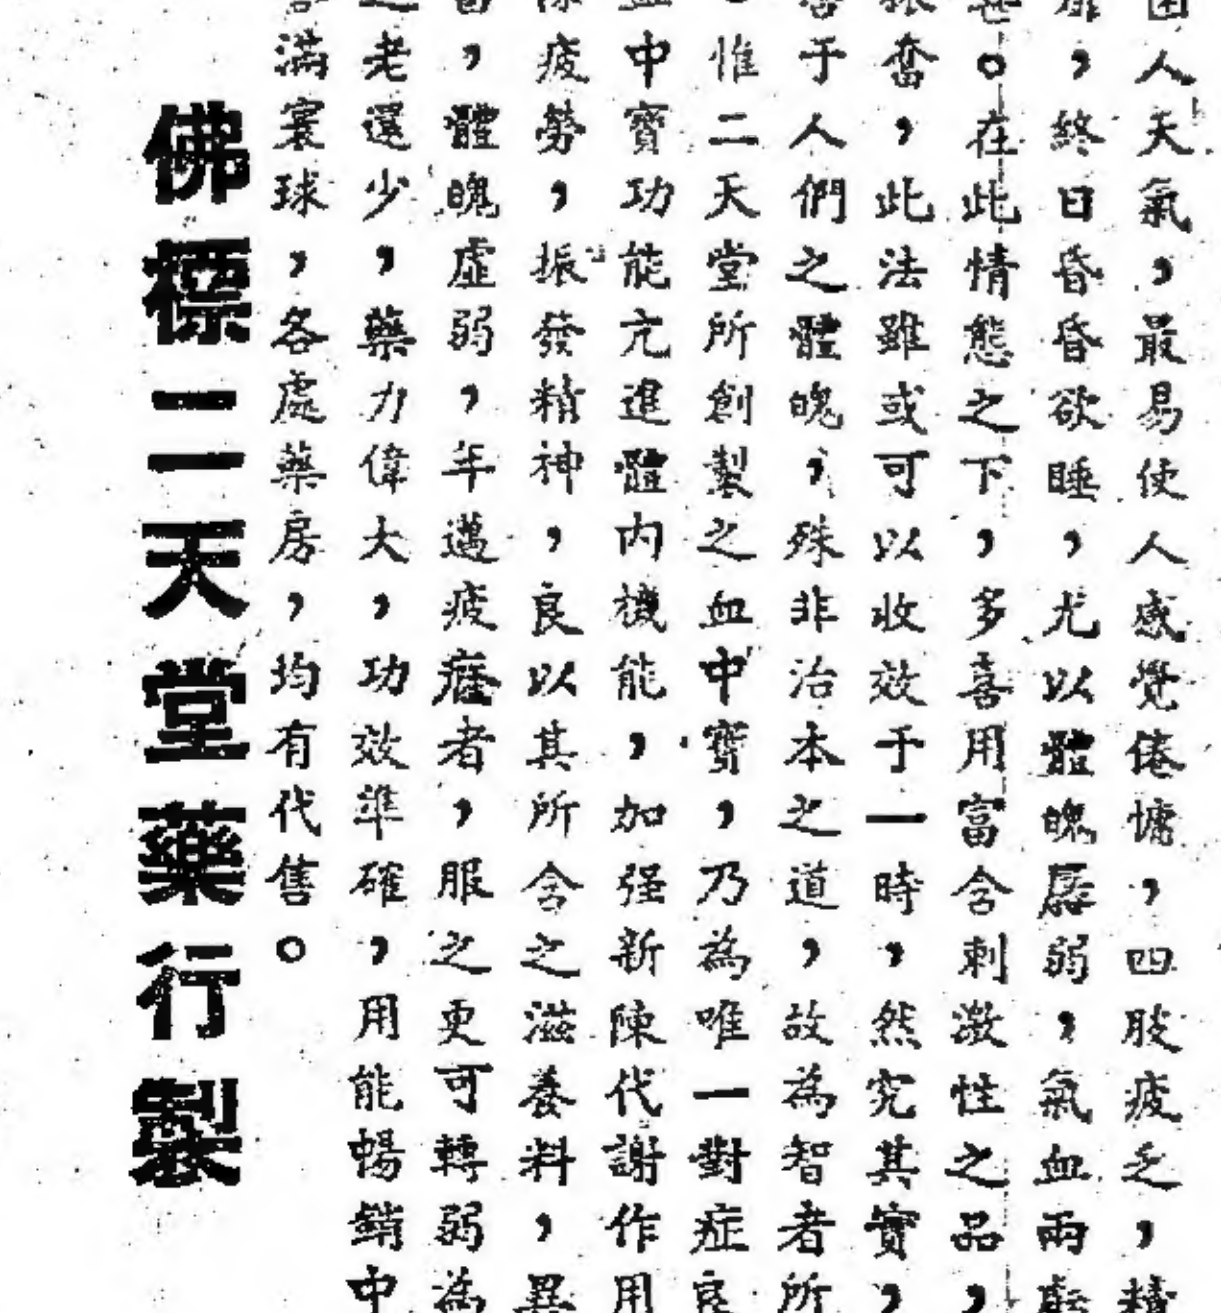 困人天氣，最易使人感覺倦慵，四肢疲乏，精
靡，終日昏昏欲睡，尤以體魄孱弱，氣血兩虧
甚。在此情態之下，多喜用富含刺激性之品，
振奮，此法雖或可以收效于一時，然究其實，
害于人們之體魄，殊非治本之道，故為智者所
。惟二天堂所創製之血中寶，乃為唯一對症良
血中寶功能亢進體內機能，加强新陳代謝作用
除疲勞，振發精神，良以其所含之滋養料，異
，體魄虛弱，年邁疲癃者，服之更可轉弱為
老還少，藥力偉大，功效準確，用能暢銷中
譽滿寰球，各處藥房，均有代售。
佛標二天堂藥行製